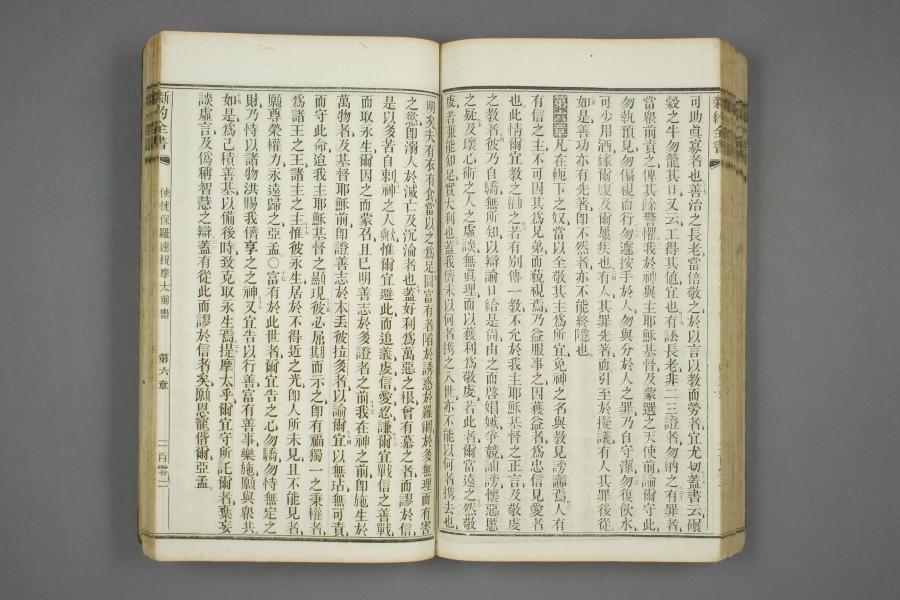 新約全書
可助眞寡者也善治之長老當倍敬之於以言以教而勞者宜尤切蓋書云碾
穀之牛勿籠其口又云工得其値宜也有訟長老非二三證者勿納之有罪者
當衆前責之俾其餘警懼我於神與主耶穌基督及蒙選之天使前諭爾守此
勿執預見勿偏視而行勿遽按手於人勿與分於人之罪乃自守潔勿復飲水
可少用酒緣爾腹及爾屢疾也有人其罪先著而引至於擬議有人其罪後從
如是善功亦有先著卽不然者亦不能終隱也
第六章凡在軛下之奴當以全敬其主爲所宜免神之名與敎見謗讟焉人有
有信之主不可因其爲兄弟而藐視焉乃益服事之因獲益者爲忠信見愛者
也此情爾宜敎之勸之若有別傳一敎不允於我主耶穌基督之正言及敬虔
之敎者彼乃自驕無所知以辯論口給是尙由之而啓娼嫉爭競訕謗懷惡慝
之疑及壞心術之人之虛談無眞理而以獲利爲敬虔者若此者爾當遠之然敬
虔若兼能知足實大利也蓋我儕未以何者携之入世亦不能以何者携去也
明矣夫有衣有食當以之爲足圖富有者陷於誘惑於羅網於多無理而有害
之慾卽溺人於滅亡及沉淪者也蓋好利爲萬惡之根曾有慕之者而謬於信
是以多苦自刺神之人歟惟爾宜避此而追義虔信愛忍謙爾宜戰信之善戰
而取永生爾因之而蒙召且已明善志於多證者之前我在神之前卽施生於
萬物者及基督耶穌前卽證善志於本丟彼拉多者以諭爾宜以無玷無可責
而守此命迨我主耶穌基督之顯現彼必屆期而示之卽有福獨一之秉權者
爲諸王之王諸主之主惟彼永生居於不得近之光卽人所未見且不能見者
願尊榮權力永遠歸之亞孟○富有於此世者爾宜告之心勿驕勿恃無定之
財乃恃以諸物洪賜我儕享之之神又宜告以行善富有善事樂施願與衆共
如是爲己積善基以備後時致克取永生焉提摩太乎爾宜守所託爾者棄妄
談虛言及僞稱智慧之辯蓋有從此而謬於信者矣願恩寵偕爾亞孟
新約全書
使徒保羅達提摩太前書
第六章
二百零二